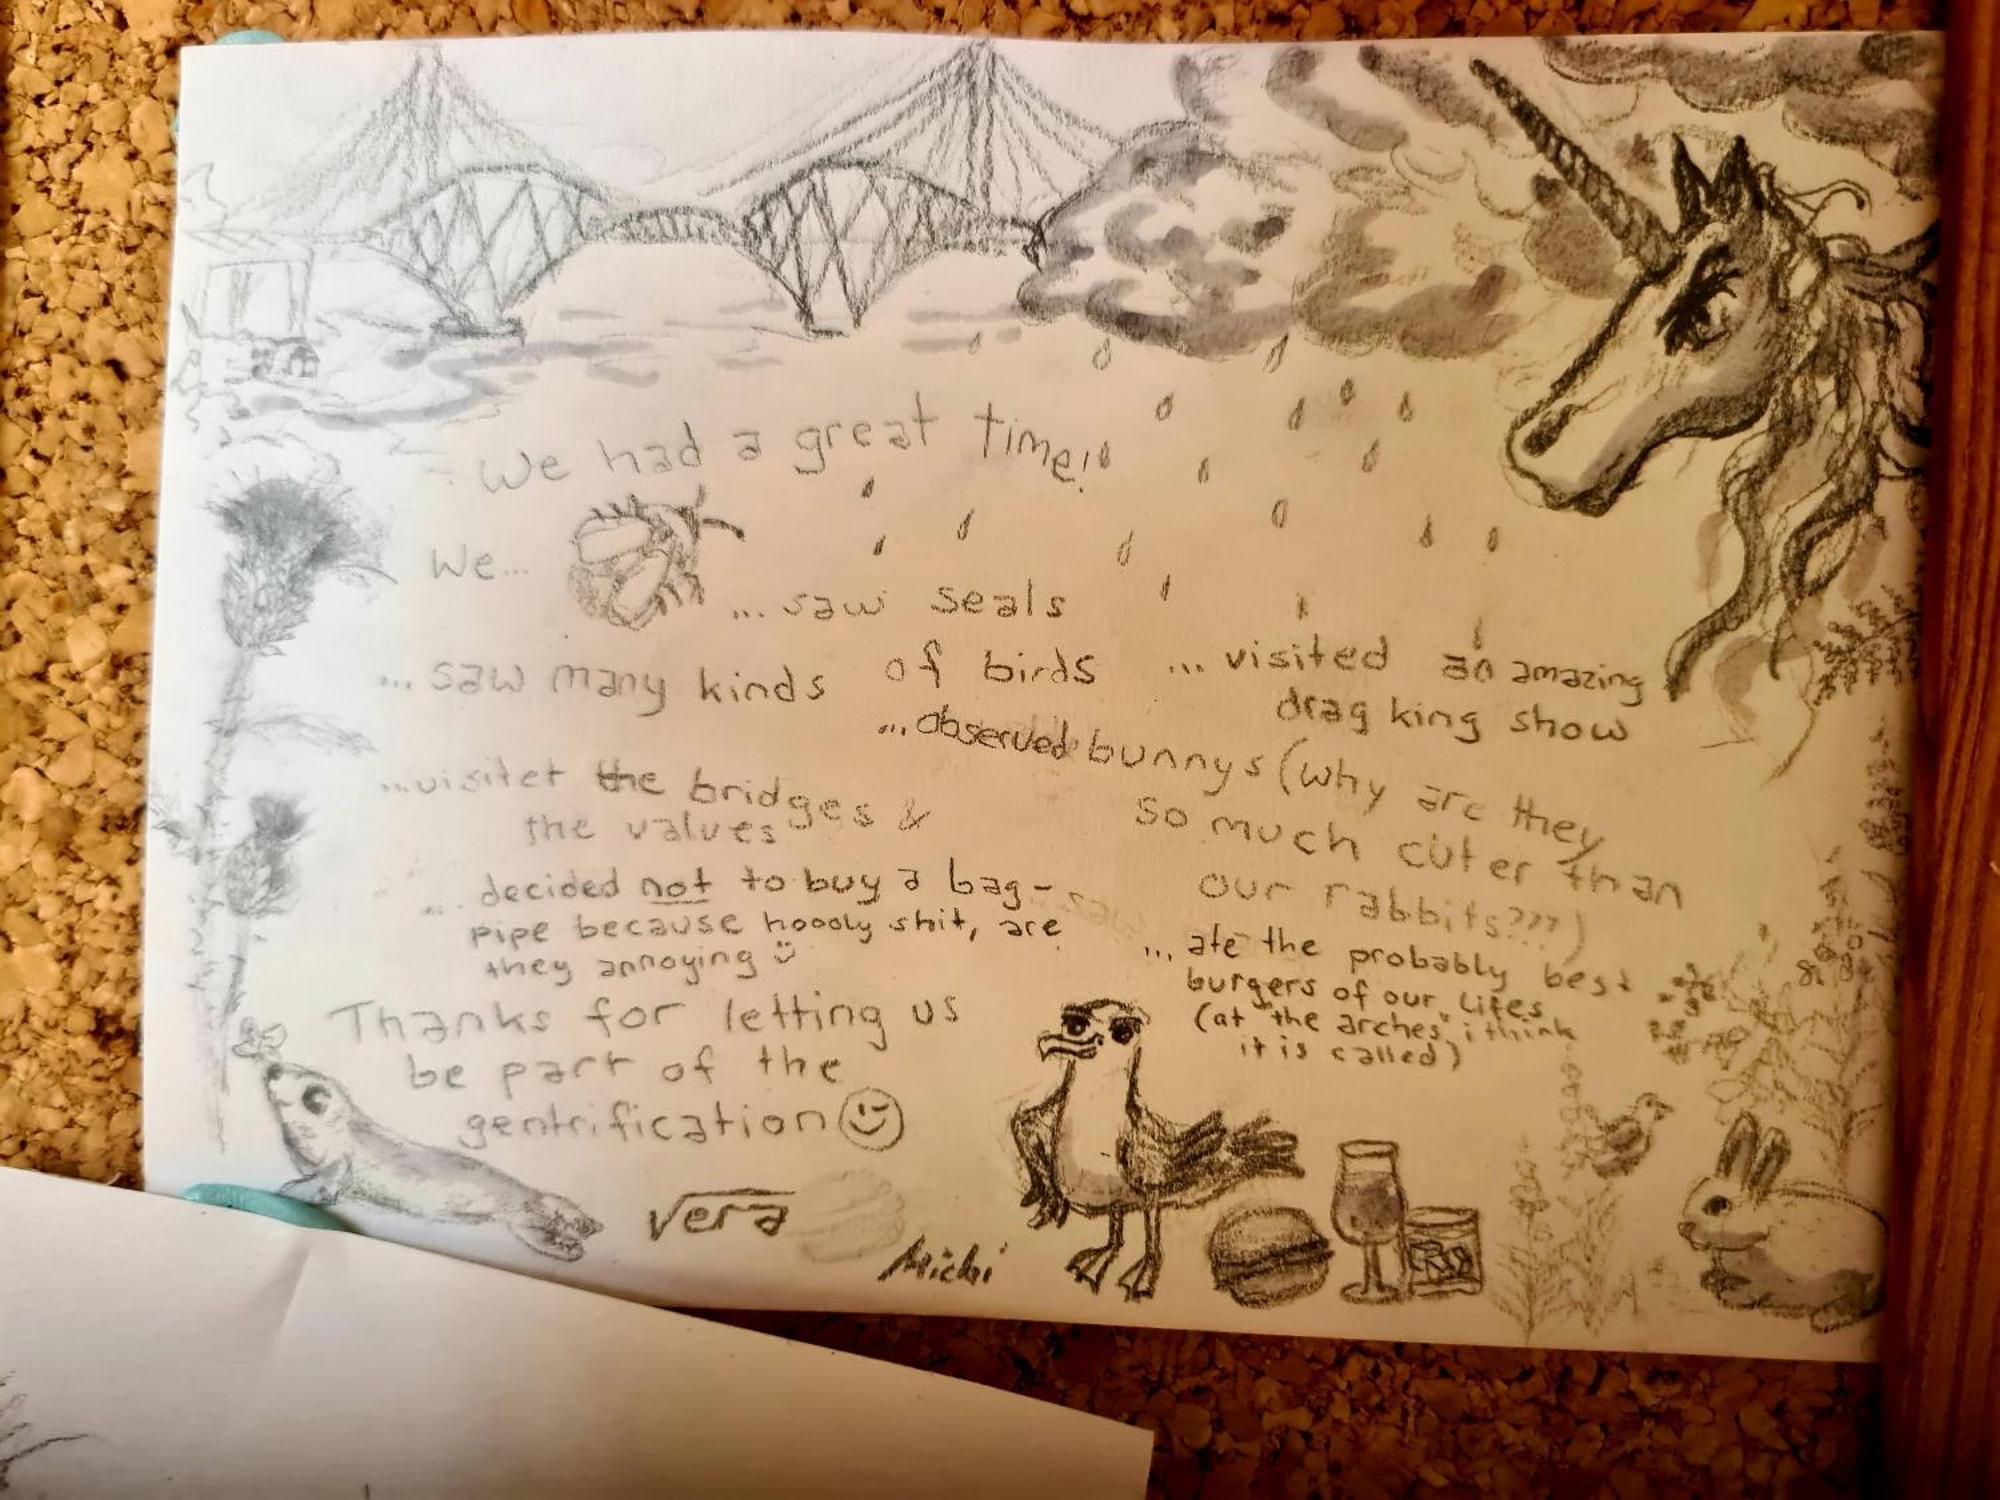 We had a great time!
We...
... saw seals
... saw many kinds of birds
... visited an amazing
drag king show
... observed bunnys (why are they
so much cuter than
our rabbits???)
... visitet the bridges &
the values
... decided not to buy a bag-
pipe because hoooly shit, are
they annoying
... ate the probably best
burgers of our lifes
(at "the arches" i think
it is called)
Thanks for letting us
be part of the
gentrification
Vera
Michi